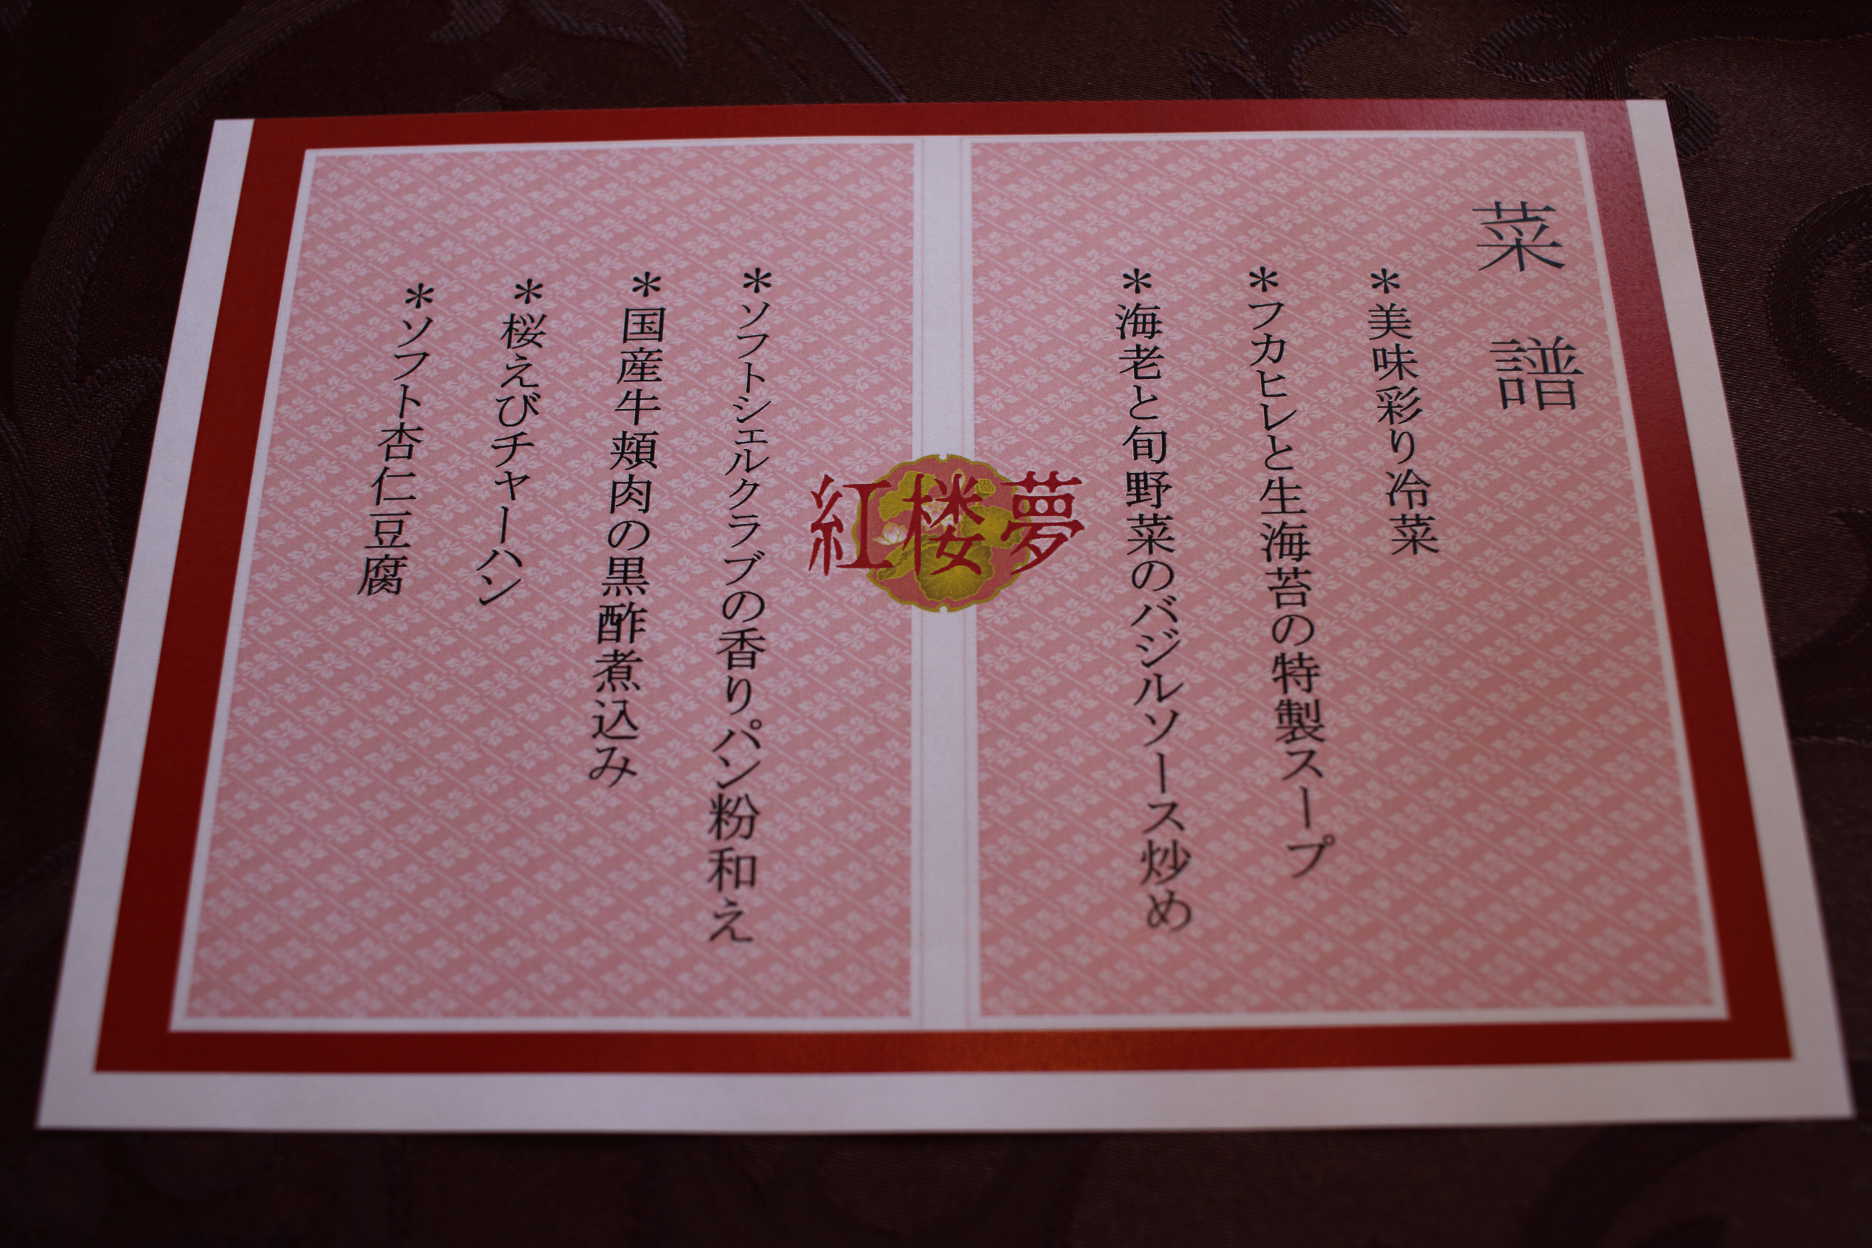 菜譜
＊美味彩り冷菜
＊フカヒレと生海苔の特製スープ
＊海老と旬野菜のバジルソース炒め
紅楼夢
＊ソフトシェルクラブの香りパン粉和え
＊国産牛頬肉の黒酢煮込み
＊桜えびチャーハン
＊ソフト杏仁豆腐